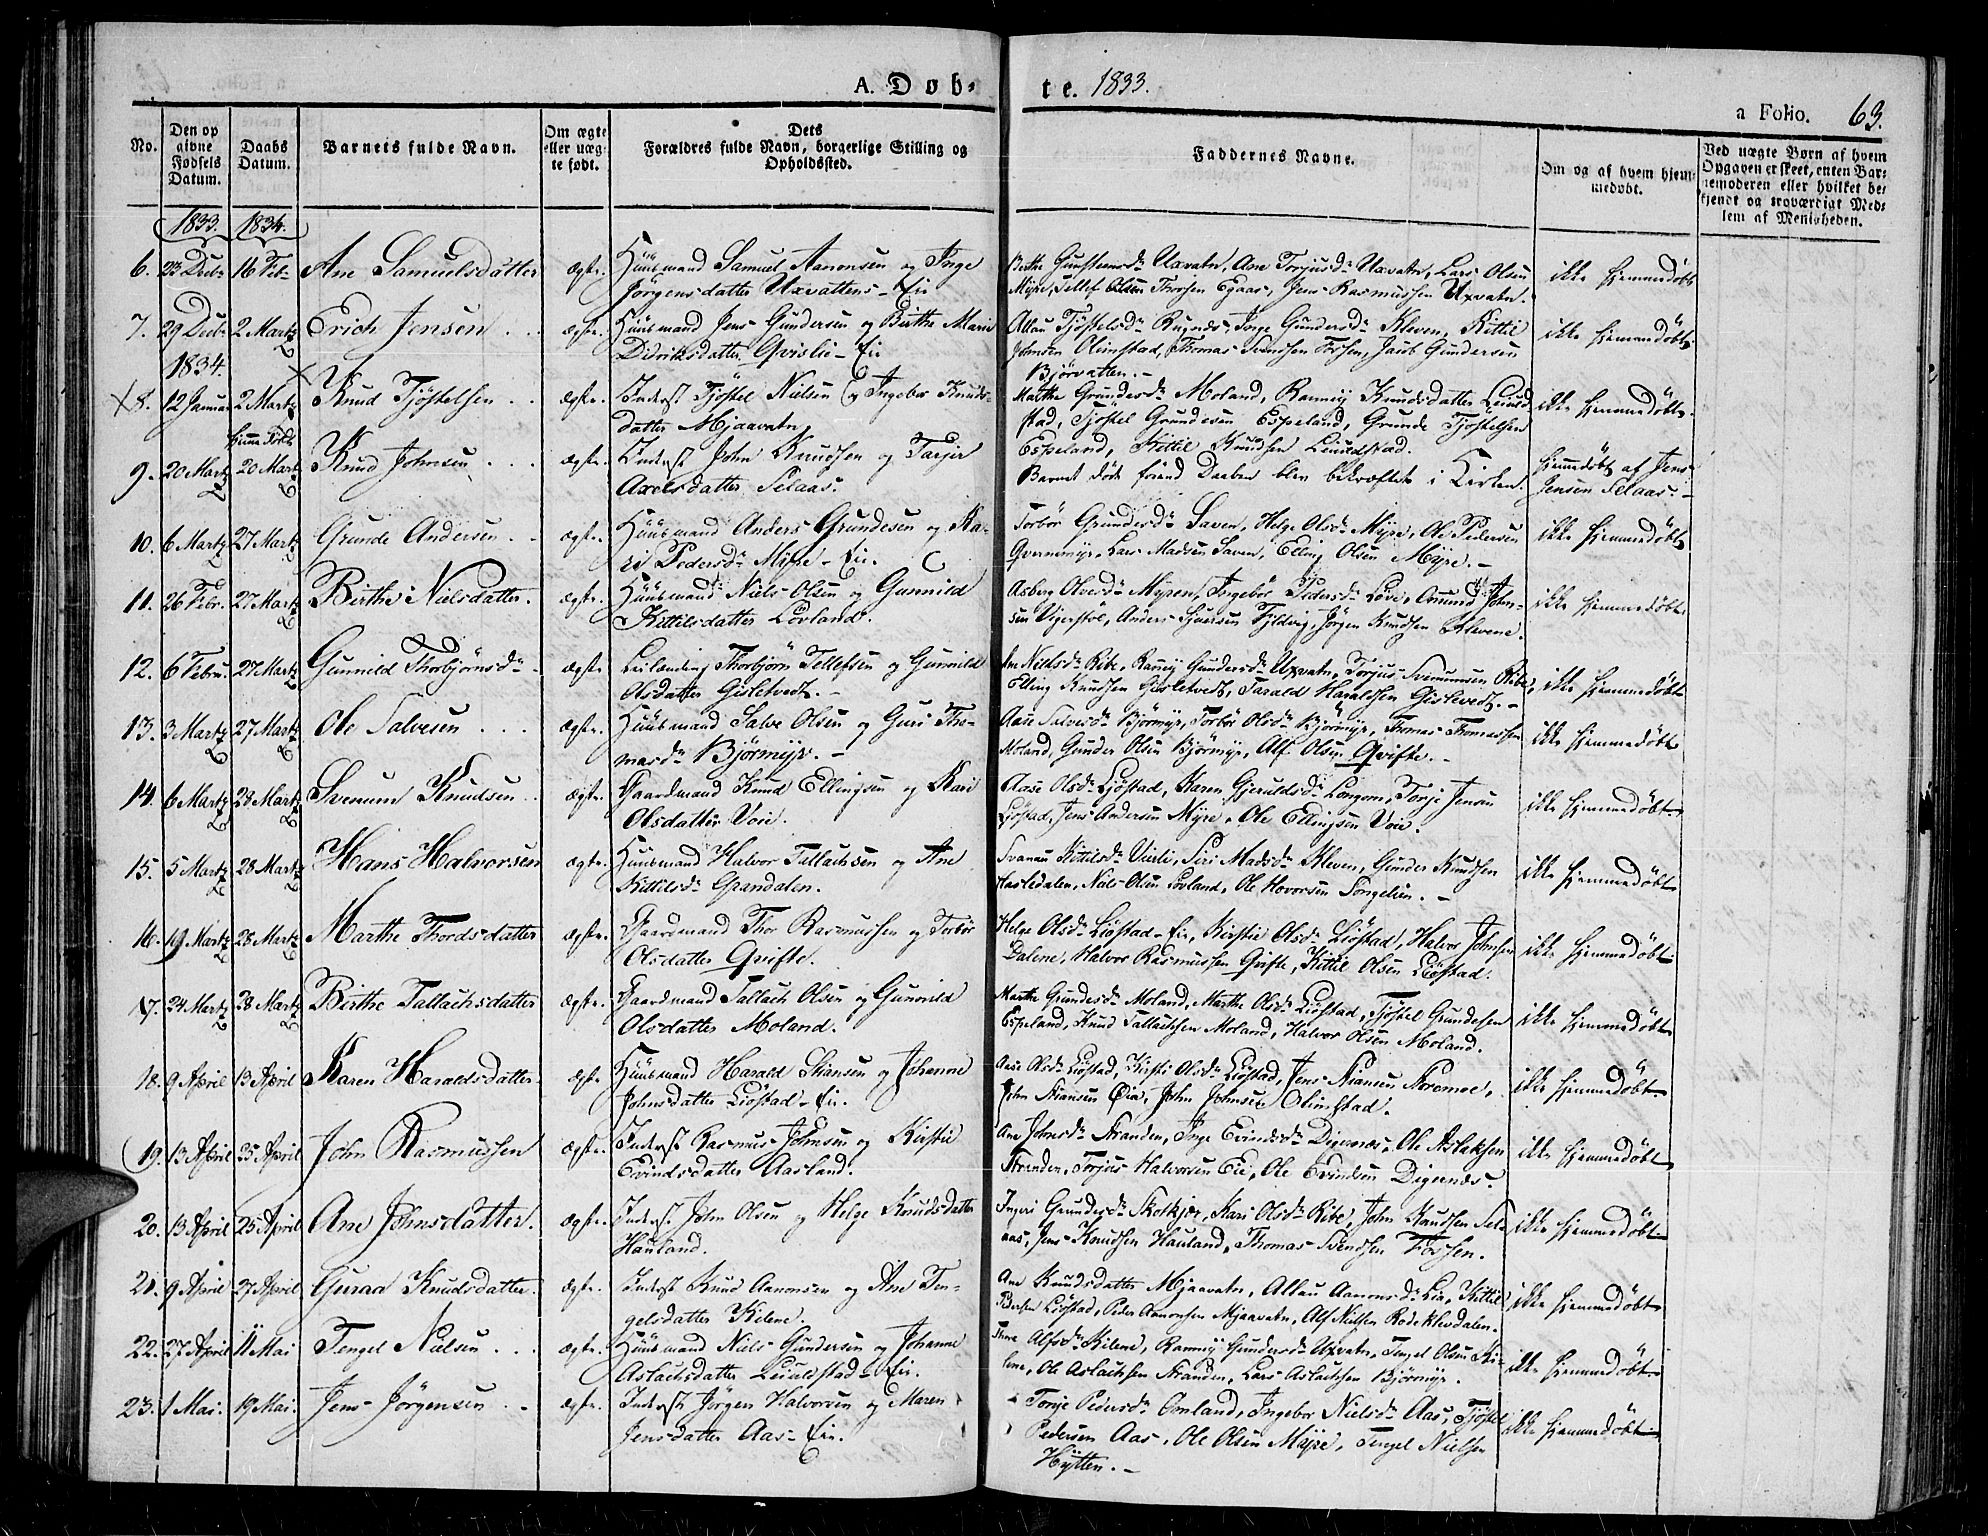 A. Døb-
te. 1833.
a Folio. 63.
No.
Den op
givne
Fødsels
Datum.
Daabs
Datum.
Barnets fulde Navn.
Om ægte
eller uæg-
te født.
Dets
Forældres fulde Navn, borgerlige Stilling og
Opholdssted.
Faddernes Navne.
Om og af hvem hjem-
medøbt.
Ved uægte Børn af hvem
Opgaven er skeet, enten Bar-
nemoderen eller hvilket be-
kjendt og troværdigt Med-
lem af Menigheden.
1833. 1834.
6. 23 Decbr 16 Feb. Ane Samuelsdatter ægte. Huusmand Samuel Aanonsen og Inge
Jörgensdatter Uxvattens-Eie
Birthe Gunsteensdr Uxvatn, Ane Torjusdr Uxvatn, Lars Olsen
Myre, Tellef Thorsen Egaas, Jens Rasmussen Uxvatn.
ikke hjemmedöbt
7. 29 Decbr 2 Martz Erich Jensen ægte. Huusmand Jens Gundersen og Birthe Marie
Didriksdatter Qvislie-Eie
Allau Tjöstelsdr Rugnds, Inge Gundersdr Kleven, Kittil
Johnsen Olimstad, Thomas Svendsen Fossen, Jacob Gundersen
Björvatten.
ikke hjemmedöbt.
1834.
8. 12 Januar 2 Martz Knud Tjöstelsen ægte. Inderst Tjöstel Nielsen og Ingebor Knuds-
datter Mjaavatn
Marthe Grundesdr Moland, Ranneij Knudsdatter Leuuld-
stad, Tjöstel Grundesen Espeland, Grunde Tjöstelsen
Espeland, Kittil Knudsen Leuuldstad.
ikke hjemmedöbt.
hjemmedöbt
9. 20 Martz 20 Martz Knud Johnsen ægte. Inderst John Knudsen og Tarjer
Axelsdatter Selaas.
Barnet døde förend Daaben blev bekræftet i Kirken.
hjemmedöbt af Jens
Jensen Selaas.
10. 6 Martz 27 Martz Grunde Andersen ægte. Huusmand Anders Grundesen og Ka-
ri Pedersdr Myhre-Eie.
Torbör Grundesdr Saven, Helge Olsdr Myre, Ole Pedersen
Qvernmyr, Lars Madsen Saven, Elling Olsen Myre.
ikke hjemmedöbt
11. 26 Febr. 27 Martz Birthe Nielsdatter. ægte. Huusmand Niels Olsen og Gunnild
Kittilsdatter Lövland.
Asberg Olvesdr Myren, Ingebor Pedersdr Löve, Omund John-
sen Vigerstöl, Anders Fjeldvig, Jörgen Knudsen Klevene.
ikke hjemmedöbt.
12. 6 Febru. 27 Martz Gunnild Thorbjörnsdr ægte. Leilænding Thorbjörn Tellefsen og Gunnild
Olsdatter Gisletvedt.
Ane Nielsdr Ribe, Ranneij Gundersdr Uxvatn, Torjus Svenumsen Ribe,
Elling Knudsen Gisletvedt, Tarald Haraldsen Gisletvedt.
ikke hjemmedöbt
13. 3 Martz 27 Martz Ole Salvesen ægte. Huusmand Salve Olsen og Guri Tho-
masdr Björmyr.
Aase Salvesdr Björmyr, Torbör Olsdr Björmyr, Thomas Thomassen
Moland, Gunder Olsen Björmyr, Alf Olsen Qvifte.
ikke hjemmedöbt
14. 6 Martz 28 Martz Svenum Knudsen ægte. Gaardmand Knud Ellingsen og Kari
Olsdatter Voie.
Aase Olsdr Ljöstad, Karen Gjeruldsdr Longom, Torje Jensen
Ljöstad, Jens Andersen Myre, Ole Ellingsen Voie.
ikke hjemmedöbt.
15. 5 Martz 28 Martz Hans Halvorsen ægte. Huusmand Halvor Tallachsen og Ane
Kittilsdr Grandalen.
Svanau Kittilsdr Vierli, Siri Madsdr Kleven, Gunder Knudsen
Hasledalen, Niels Olsen Lövland, Ole Hovorsen Songelien.
ikke hjemmedöbt.
16. 19 Martz 28 Martz Marthe Thordsdatter ægte. Gaardmand Thor Rasmussen og Torbör
Olsdatter Qvifte.
Helge Olsdr Liöstad-Eie, Kirstie Olsdr Liöstad, Halvor Johnsen
Dalene, Halvor Rasmussen Qvifte, Kittil Olsen Liöstad.
ikke hjemmedöbt.
17. 24 Martz 28 Martz Birthe Tallachsdatter ægte. Gaardmand Tallach Olsen og Gunnild
Olsdatter Moland.
Marthe Grundesdr Moland, Marthe Olsdr Liöstad, Tjöstel Grundesen
Espeland, Knud Tallachsen Moland, Halvor Olsen Moland.
ikke hjemmedöbt
18. 9 April 13 April Karen Haraldsdatter ægte. Huusmand Harald Stiansen og Johanne
Johnsdatter Liöstad-Eie.
Aase Olsdr Liöstad, Kirsti Olsdr Liöstad, Jens Stiansen Noremoe,
John Stiansen Öia, John Johnsen Olimstad.
ikke hjemmedöbt.
19. 13 April 25 April John Rasmussen ægte. Inderst Rasmus Johnsen og Kirstie
Evindsdatter Aasland.
Ane Johnsdr Stranden, Inge Evindsdr Digernes, Ole Aslaksen
Stranden, Torjus Halvorsen Eie, Ole Evindsen Digernes.
ikke hjemmedöbt
20. 13 April 25 April Ane Johnsdatter. ægte. Inderst John Olsen og Helge Knudsdatter
Hauland.
Ingeri Grundesdr Stolkjer, Kari Olsdr Ribe, John Knudsen Sel-
aas, Jens Knudsen Hauland, Thomas Svendsen Fossen.
ikke hjemmedöbt.
21. 9 April 27 April Guroe Knudsdatter. ægte. Inderst Knud Aanonsen og Ane Ten-
gelsdatter Kilene.
Ane Knudsdatter Mjaavatn, Allau Aanonsdr Lia, Kittil
Pedersen Liöstad, Peder Aanonsen Mjaavatn, Alf Nielsen Rodeklevdalen.
ikke hjemmedöbt.
22. 27 April 11 Mai Tengel Nielsen ægte. Huusmand Niels Gundersen og Johanne
Aslachsdatter Leuuldstad-Eie.
Thore Alfsdr Kilene, Ranneij Gundersdr Uxvatn, Tengel Olsen Ki-
lene, Ole Aslachsen Stranden, Lars Aslachsen Björmyr.
ikke hjemmedöbt.
23. 1 Mai. 19 Mai. Jens Jörgensen ægte. Inderst Jörgen Halvorsen og Maren
Jensdatter Aas-Eie.
Torje Pedersdr Omland, Ingebor Nielsdr Aas, Tjöstel
Pedersen Aas, Ole Olsen Myre, Tengel Nielsen
Hytten.
ikke hjemmedöbt.